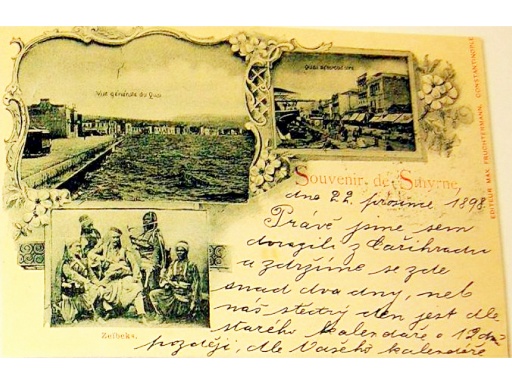 Vue générale du Quai
Quai
Souvenir de Smyrne
EDITEUR MAX FRUCHTERMANN, CONSTANTINOPLE
Zeibeks.
dne 22. prosince 1898
Právě jsme sem
dorazili z Cařihradu
a zdržíme se zde
snad dva dny, neb
náš štědrý den jest dle
starého kalendáře o 12 dní
později, dle Vašeho kalendáře